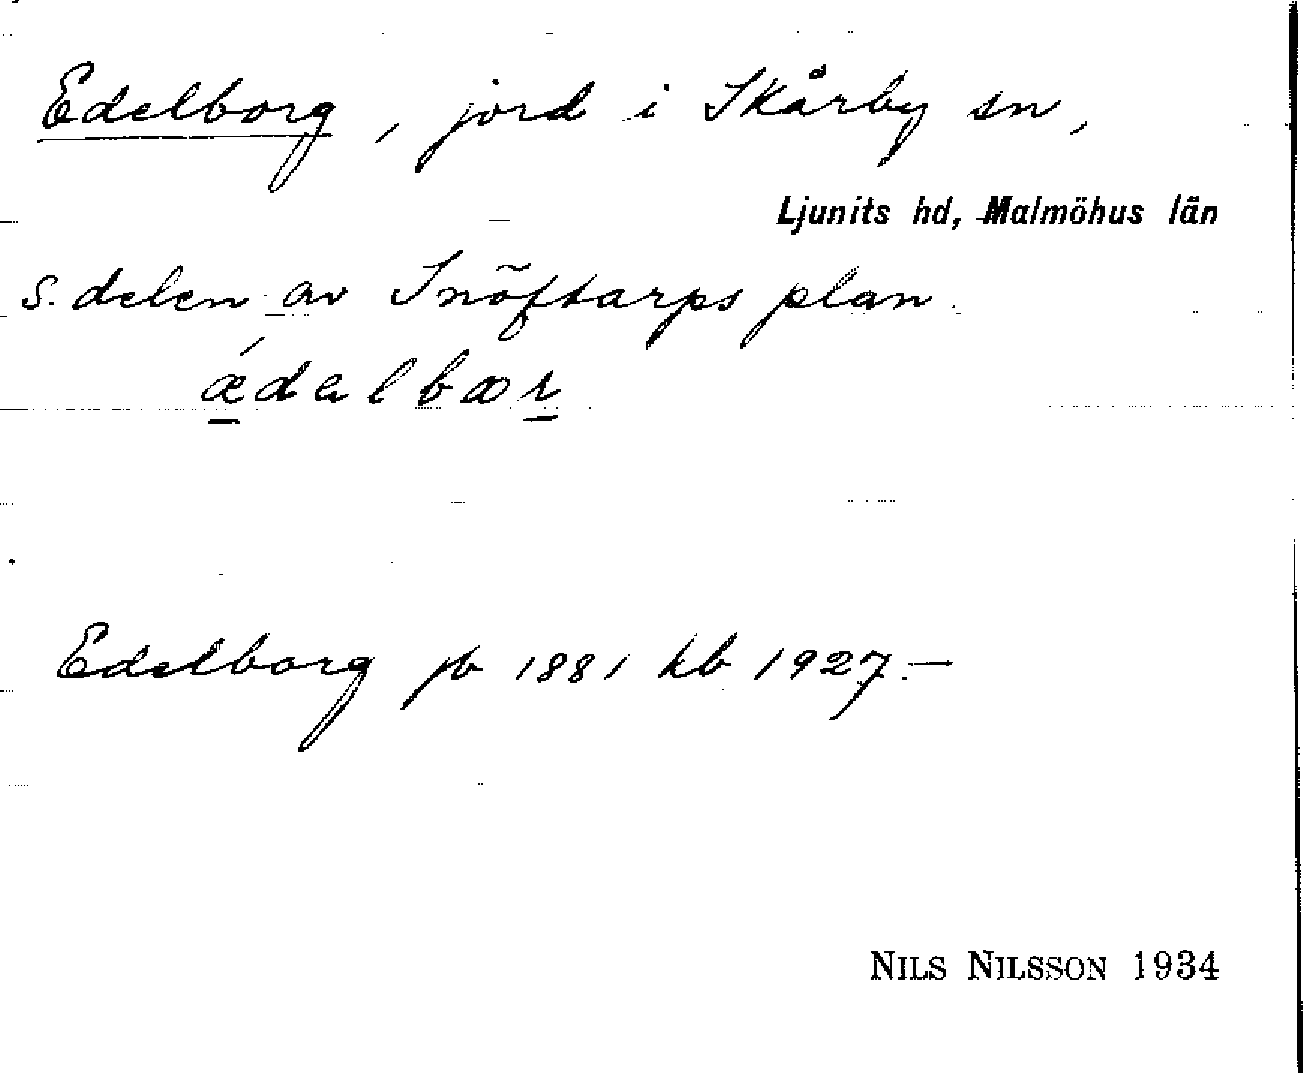 Edelborg, jord i Skårby sn,
Ljunits hd, Malmöhus län
s. delen av Snöftarps plan.
ǽdalbær
Edelborg jb 1881 kb 1927.—
NILS NILSSON 1934